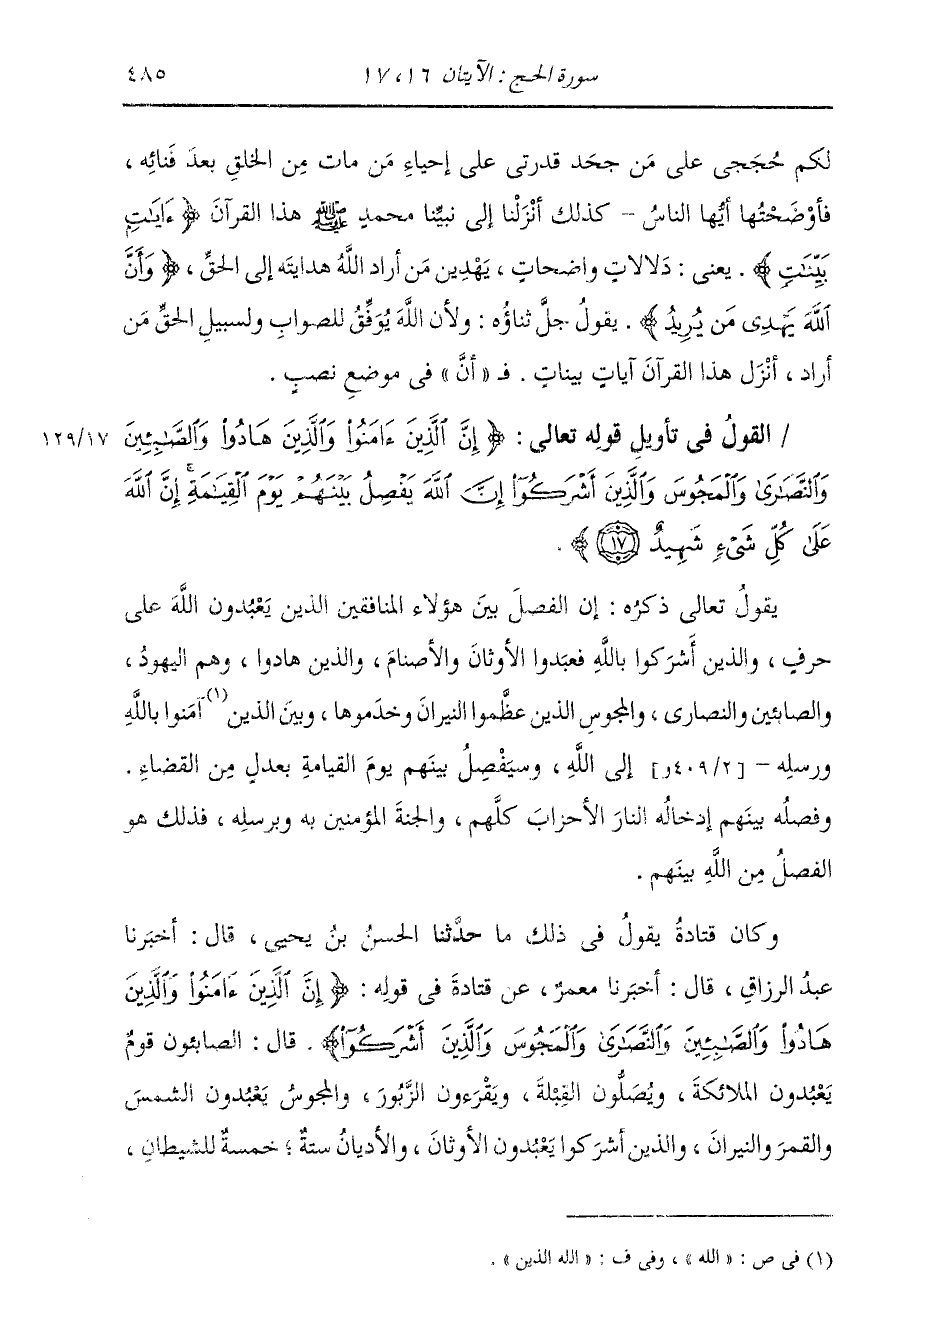 سورة الحج : الآيتان ١٦ ، ١٧ ٤٨٥
لكم حُجَجى على مَن جحَد قدرتى على إحياءِ مَن مات مِن الخلقِ بعدَ فَنائِه ،
فأوْضَحْتُها أيُّها الناسُ – كذلك أنْزَلْنا إلى نبيِّنا محمدٍ ﷺ هذا القرآنَ ﴿ ءَايَٰتٍ
بَيِّنَٰتٍ ﴾ . يعنى : دَلالاتٍ واضحاتٍ ، يَهْدِين مَن أراد اللَّهُ هدايتَه إلى الحقِّ ، ﴿ وَأَنَّ
ٱللَّهَ يَهْدِى مَن يُرِيدُ ﴾ . يقولُ جلَّ ثناؤُه : ولأن اللَّهَ يُوَفِّقُ للصوابِ ولسبيلِ الحقِّ مَن
أراد ، أنْزَل هذا القرآنَ آياتٍ بيناتٍ . فـ « أنَّ » فى موضعِ نصبٍ .
/ القولُ فى تأويلِ قولِه تعالى : ﴿ إِنَّ ٱلَّذِينَ ءَامَنُوا۟ وَٱلَّذِينَ هَادُوا۟ وَٱلصَّٰبِـِٔينَ ١٢٩/١٧
وَٱلنَّصَٰرَىٰ وَٱلْمَجُوسَ وَٱلَّذِينَ أَشْرَكُوٓا۟ إِنَّ ٱللَّهَ يَفْصِلُ بَيْنَهُمْ يَوْمَ ٱلْقِيَٰمَةِ ۚ إِنَّ ٱللَّهَ
عَلَىٰ كُلِّ شَىْءٍ شَهِيدٌ ١٧ ﴾ .
يقولُ تعالى ذكرُه : إن الفصلَ بينَ هؤلاء المنافقين الذين يَعْبُدون اللَّهَ على
حرفٍ ، والذين أَشرَكوا باللَّهِ فعبَدوا الأوثانَ والأصنامَ ، والذين هادوا ، وهم اليهودُ ،
والصابئين والنصارى ، والمجوسِ الذين عظَّموا النيرانَ وخدَموها ، وبينَ الذين (١) آمَنوا باللَّهِ
ورسلِه – [٤٠٩/٢ر] إلى اللَّهِ ، وسيَفْصِلُ بينَهم يومَ القيامةِ بعدلٍ مِن القضاءِ .
وفصلُه بينَهم إدخالُه النارَ الأحزابَ كلَّهم ، والجنةَ المؤمنين به وبرسلِه ، فذلك هو
الفصلُ مِن اللَّهِ بينَهم .
وكان قتادةُ يقولُ فى ذلك ما حدَّثنا الحسنُ بنُ يحيى ، قال : أخبَرنا
عبدُ الرزاقِ ، قال : أخبَرنا معمرٌ ، عن قتادةَ فى قولِه : ﴿ إِنَّ ٱلَّذِينَ ءَامَنُوا۟ وَٱلَّذِينَ
هَادُوا۟ وَٱلصَّٰبِـِٔينَ وَٱلنَّصَٰرَىٰ وَٱلْمَجُوسَ وَٱلَّذِينَ أَشْرَكُوٓا۟﴾ . قال : الصابئون قومٌ
يَعْبُدون الملائكةَ ، ويُصَلُّون القِبْلةَ ، ويَقْرَءون الزَّبُورَ ، والمجوسُ يَعْبُدون الشمسَ
والقمرَ والنيرانَ ، والذين أشركوا يَعْبُدون الأوثانَ ، والأديانُ ستةٌ ؛ خمسةٌ للشيطانِ ،
(١) فى ص : « الله » ، وفى ف : « الله الذين » .